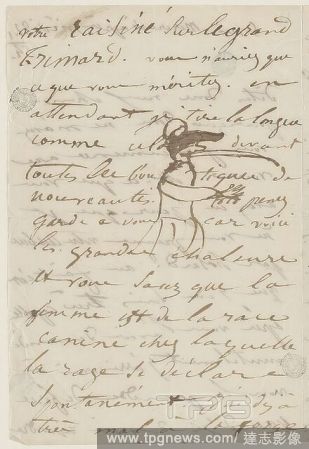 votre raisiné sur le grand
Trimard. vous n'auriez que
ce que vous méritez. en
attendant je tire la langue
comme cela devant
toutes les boutiques de
nouveautés. prenez
garde à vous car voici
les grandes chaleurs
et vous savez que la
femme est de la race
canine chez laquelle
la rage se déclare
spontanément. j'ai déjà
très mal à la
TPG
www.tpgnews.com/達志影像